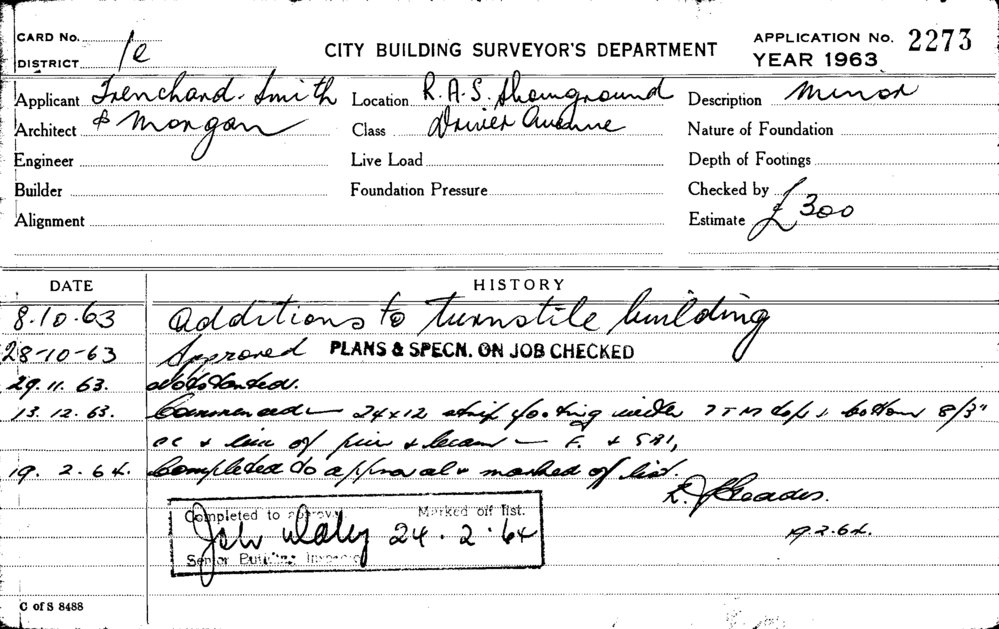 CARD No.
DISTRICT 1e
CITY BUILDING SURVEYOR'S DEPARTMENT
APPLICATION No. 2273
YEAR 1963
Applicant Trenchard. Smith
Location R.A.S. Showground
Description Minor
Architect & Morgan
Class Driver Avenue
Nature of Foundation
Engineer
Live Load
Depth of Footings
Builder
Foundation Pressure
Checked by
Alignment
Estimate £300
DATE
HISTORY
8.10.63 additions to turnstile building
28-10-63 Approved PLANS & SPECN. ON JOB CHECKED
29.11.63. Not Started.
13.12.63. Commenced — 24x12 strip footing with 7 TM top & bottom 8/3"
19.2.64. Completed to approval & marked of list.
19.2.64.
Completed to approval Marked off list.
24.2.64
Senior Building Inspector
C of S 8488